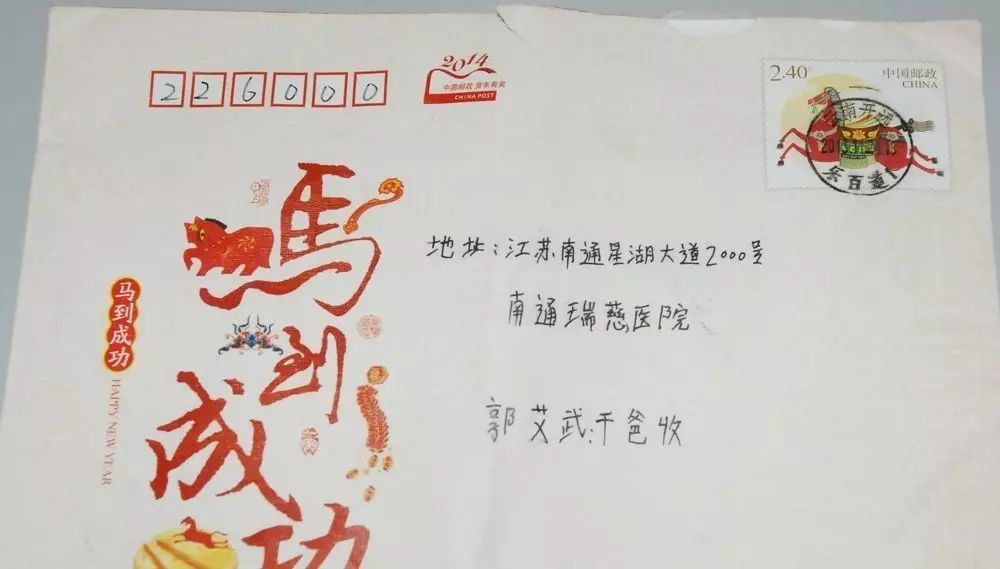 226000
2014
中国邮政 贺年有奖
CHINA POST
2.40
中国邮政
CHINA
云南开远
乐百道1
地址:江苏南通星湖大道2000号
南通瑞慈医院
郭艾武干爸收
馬到成功
马到成功
HAPPY NEW YEAR